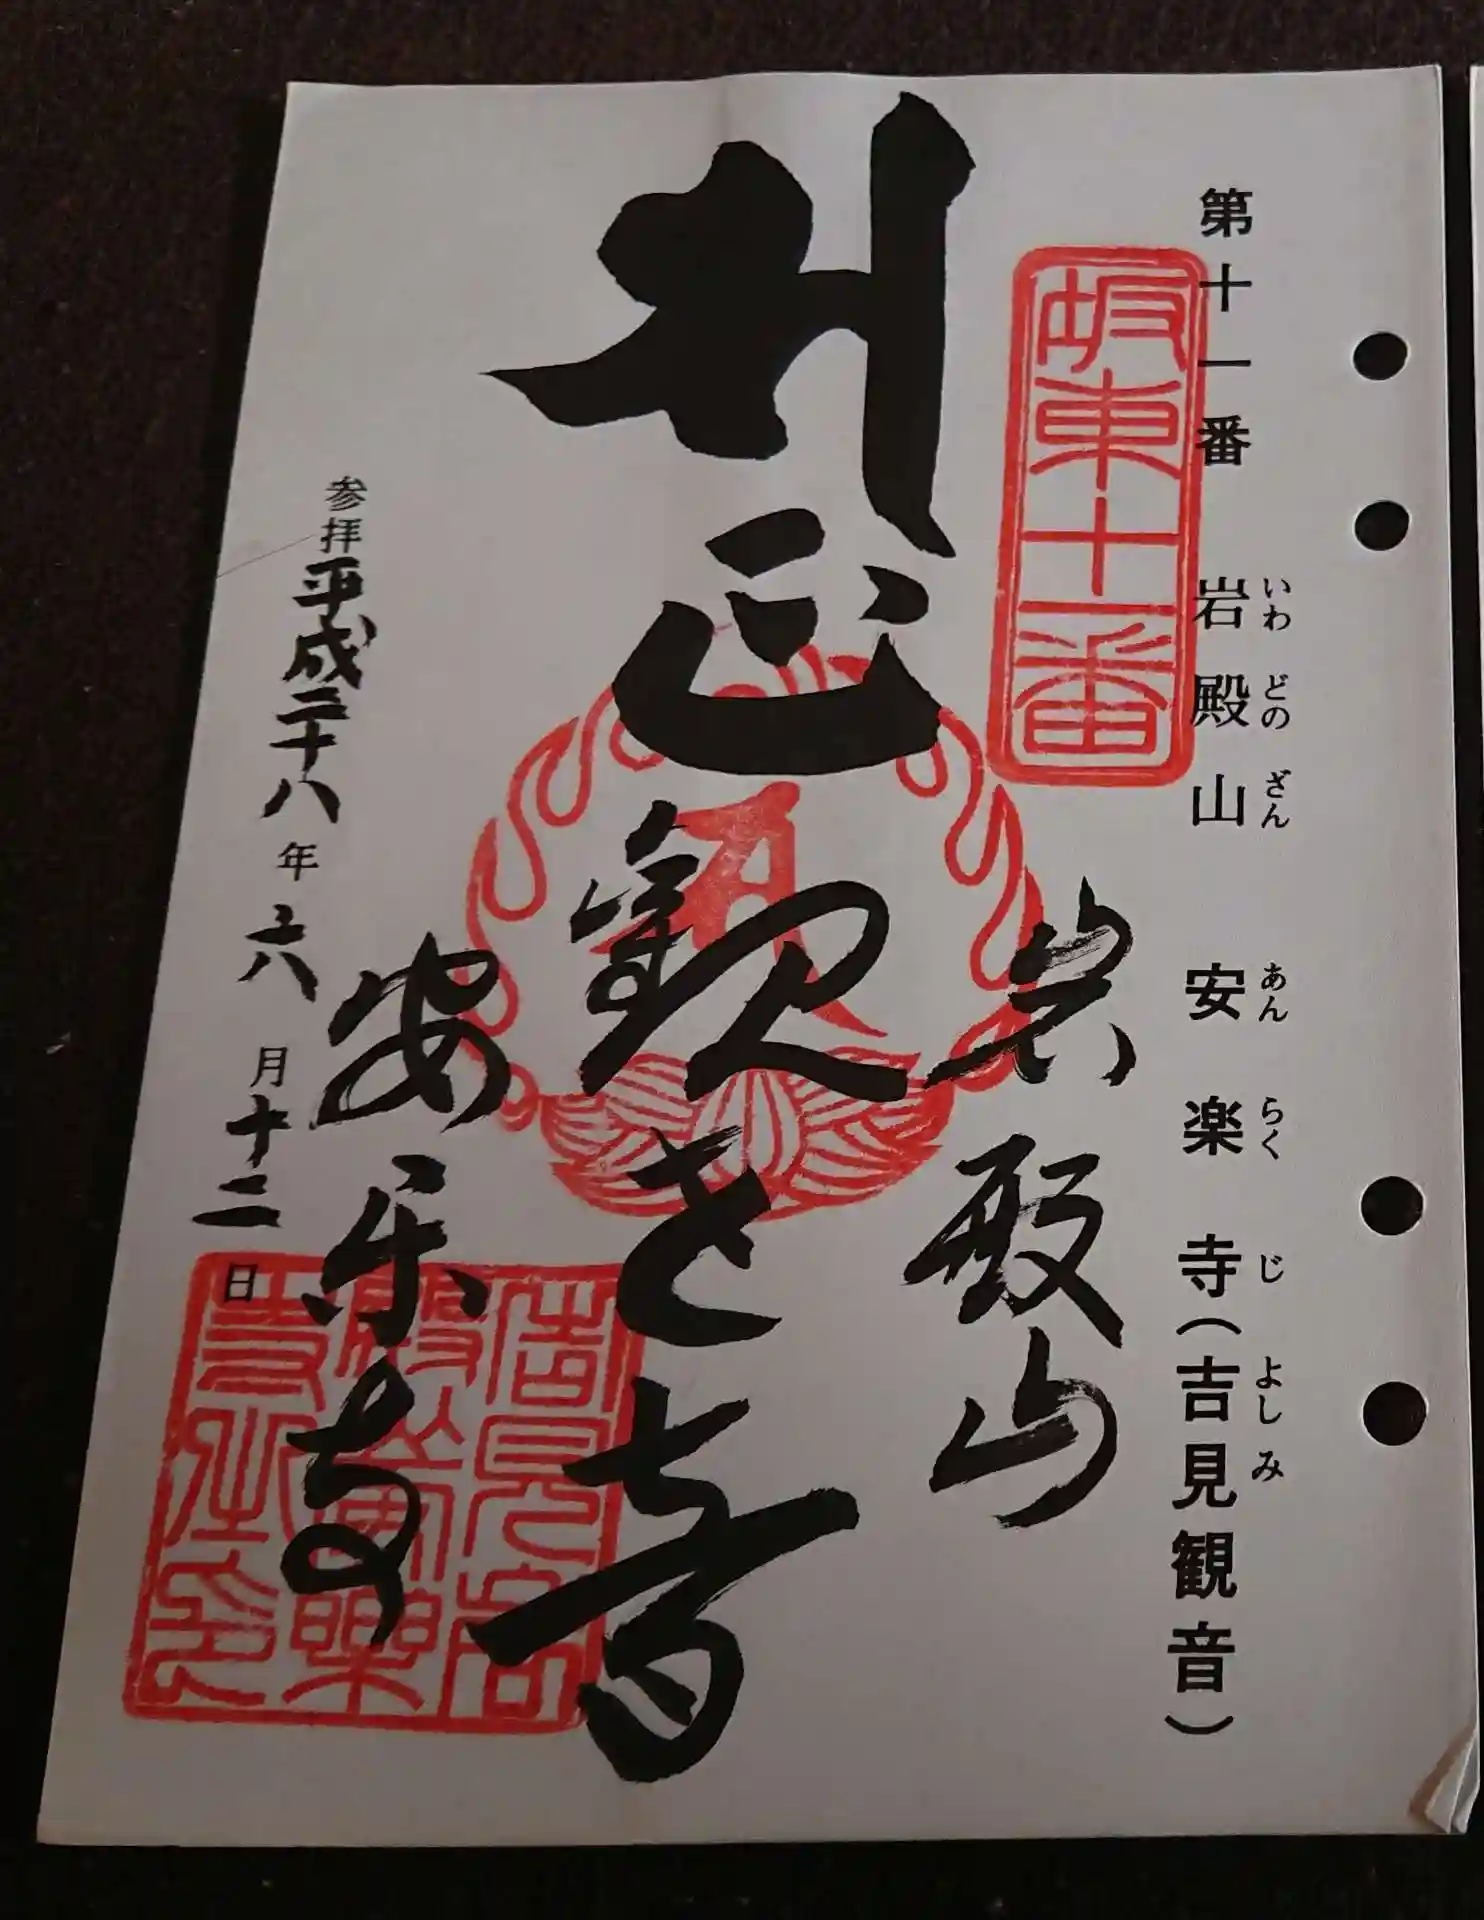 第十一番 岩殿山 安楽寺（吉見観音）
いわ どの ざん あん らく じ よし み
坂東十一番
岩殿山
聖観世音
安楽寺
参拝平成二十八年六月十二日